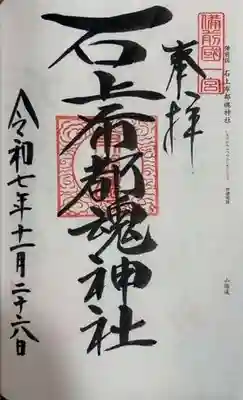 備前國一宮
奉拝
石上布都魂神社
令和七年十一月二十六日
備前国 石上布都魂神社